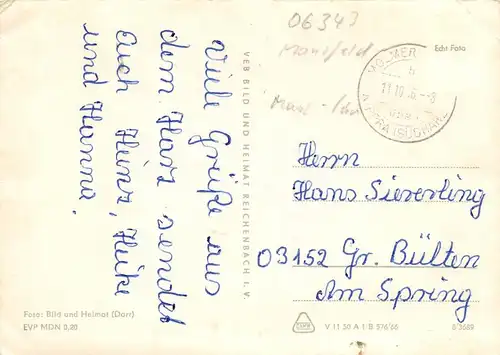 Viele Grüße aus
dem Harz sendet
euch Heinz, Heike
und Hanna.
VEB BILD UND HEIMAT REICHENBACH I. V.
06343
Mansfeld
Echt Foto
11.10.
(SÜDHARZ)
Herrn
Hans Sieverling
03152 Gr. Bülten
Am Spring
Foto: Bild und Heimat (Dorr)
EVP MDN 0,20
V 11 50 A 1/B 576/66